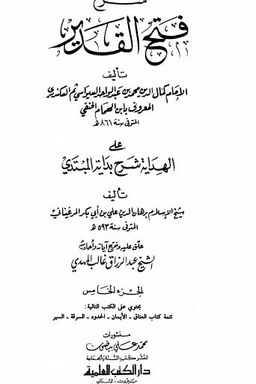 شرح
فتح القدير
تأليف
الإمام كمال الدين محمد بن عبد الواحد السيواسي ثم السكندري
المعروف بابن الهمام الحنفي
المتوفى سنة ٨٦١ هـ
على
الهداية شرح بداية المبتدي
تأليف
شيخ الإسلام برهان الدين علي بن أبي بكر المرغيناني
المتوفى سنة ٥٩٣ هـ
علق عليه وخرج آياته وأحاديثه
الشيخ عبد الرزاق غالب المهدي
الجزء الخامس
يحتوي على الكتب التالية:
تتمة كتاب العتاق - الأيمان - الحدود - السرقة - السير
منشورات
محمد علي بيضون
لنشر كتب السنة والجماعة
دار الكتب العلمية
بيروت - لبنان